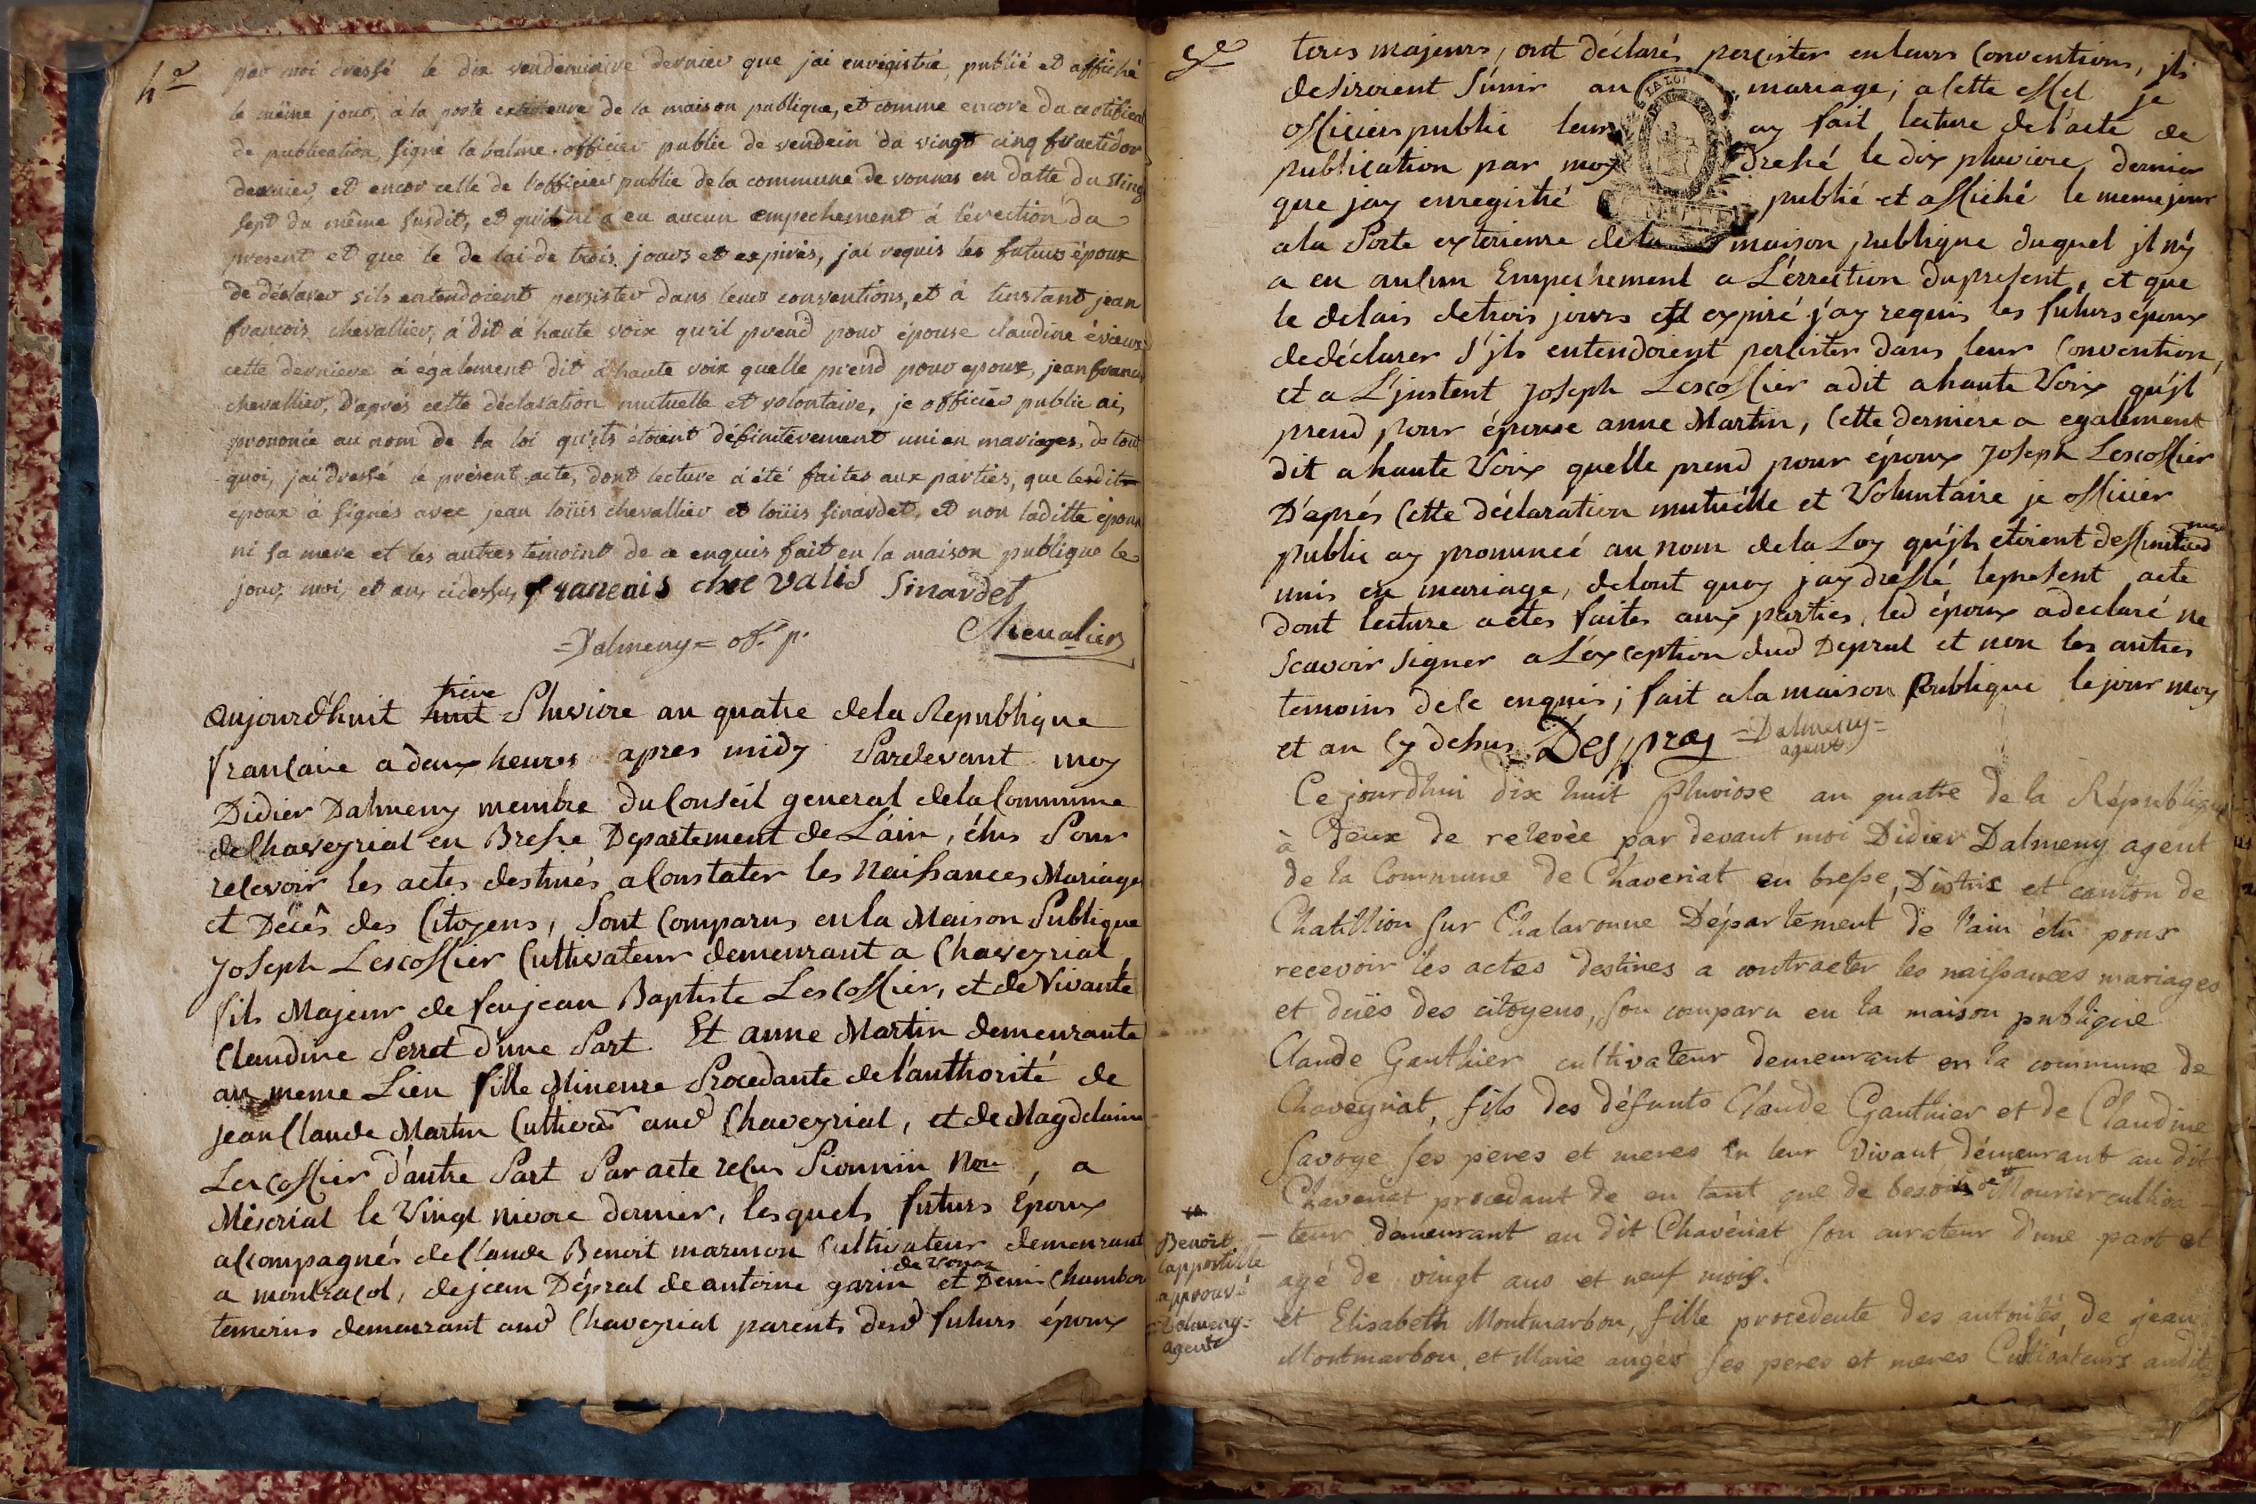 h.e
par moi dressé le dix vendemiaire dernier que jai enregistré, publié et affiché
le même jour, à la porte exterieure de la maison publique, et comme encore du certificat
de publication, signé labalme officier public de vendein du vingt cinq fructidor
dernier, et encor celle de l'officier public de la commune de vonnas en datte du vingt
sept du même susdit, et quil ni a eu aucun empechement á l'érection du
present et que le de lai de trois jours et expirés, jai requis les futurs époux
de déclarer sils entendoient persister dans leurs conventions, et à linstant jean
françois chevallier, á dit á haute voix qu'il prend pour épouse claudine évieux
cette derniere á egalement dit á haute voix quelle prend pour epoux, jean francois
chevallier, D'aprés cette déclaration mutuelle et volontaire, je officier public ai,
prononcé au nom de la loi qu'ils étoient définitevement uni en mariages, de tout
quoi, jai dressé le présent acte, dont lecture á été faites aux parties, que ledit
epoux á signés avec jean loüis chevallier et loüis sinardet, et non laditte épouse
ni sa mere et les autres témoint de ce enquis fait en la maison publique le
jour, moi, et an, cidessus françois chevalié Sinardet
=Dalmeny= of. p. Chevalier
trèze
Aujourdhuit huit Pluviose an quatre dela Republique
francaise a deux heures apres midy Pardevant moy
Didier Dalmeny membre du Conseil general dela Commune
de Chaveyriat en Bresse Departement de L'ain, élus Pour
recevoir les actes destinés a Constater les Naissances Mariages
et Décès des Citoyens, Sont Comparus en la Maison Publique
Joseph Lescoffier Cultivateur demeurant a Chaveyriat,
fils Majeur de feu jean Baptiste Lescoffier, et de Vivante
Claudine Perret d'une Part. Et anne Martin demeurante
au meme Lieu fille Mineure Procedante de l'authorité de
jean Claude Martin Cultivatr aud Chaveyriat, et de Magdelaine
Lescoffier d'autre Part Par acte reçus Pionnin Nore, a
Méseriat le Vingt nivose dernier, lesquels futurs Époux
accompagnés de Claude Benoit marmon Cultivateur demeurant
de Vonas
a montracol, de jean Déprat de antoine garin et Denis Chambor
temoins demeurant aud Chaveyriat parents desd futurs époux
teres majeurs, ont déclarés persister en leurs Conventions, jls
desiroient S'unir au mariage; a Cette effet je
officier public leurs ay fait lecture de l'acte de
publication par moy dressé le dix pluviose dernier
que jay enregistré publié et affiché le meme jour
a la Porte exterieure dela maison publique duquel jl n'y
a eu aucun Empechement a L'érrection du present, et que
le delais de trois jours est expiré j'ay requis les futurs époux
de déclarer S'jls entendoient persister dans leur Convention,
et a L'justent Joseph Lescoffier a dit a haute Voix qu'jl
prend pour épouse anne Martin, Cette derniere a egalement
dit a haute Voix quelle prend pour époux Joseph Lescoffier
D'aprés Cette déclaration mutuélle et Voluntaire je officier
public ay prononcé au nom de la Loy qu'jls etoient deffinitived
ment
unis en mariage, detout quoy jay dressé le present acte
dont lecture a etes faites aux parties, led époux a declaré ne
scavoir signer a L'exception dud Deprat et non les autres
temoins de Ce enquis; fait a la maison Publique le jour moy
et an Cy dessus Despras =Dalmeny=
agent
Ce jourdhui dix huit Pluviose an quattre de la République
à deux de relevèe par devant moi Didier Dalmeny agent
de la Commune de Chaveriat en bresse, Distric et canton de
Chatillion sur Chalaronne Département de l'ain élu pour
recevoir les actes destines a contracter les naissances mariages
et dééès des citoyens, son comparu en la maison publique
Claude Gauthier cultivateur demeurant en la commune de
Chaveyriat, fils des défunts Claude Gauthier et de Claudine
Savoye ses peres et meres En leur vivant démeurant au dit
Chaveriat procedant de en tant que de besoin de Mourier cultiva
teur demeurant au dit Chavériat son curateur d'une part et
agé de vingt ans et neuf mois.
et Elisabeth Montmarbon, fille procedente des autorités de jean
Montmarbon, et Marie auger ses peres et meres Cultivateurs audit
Benoît
l'appostille
approuvé
=Dalmeny=
agent
LA LOI